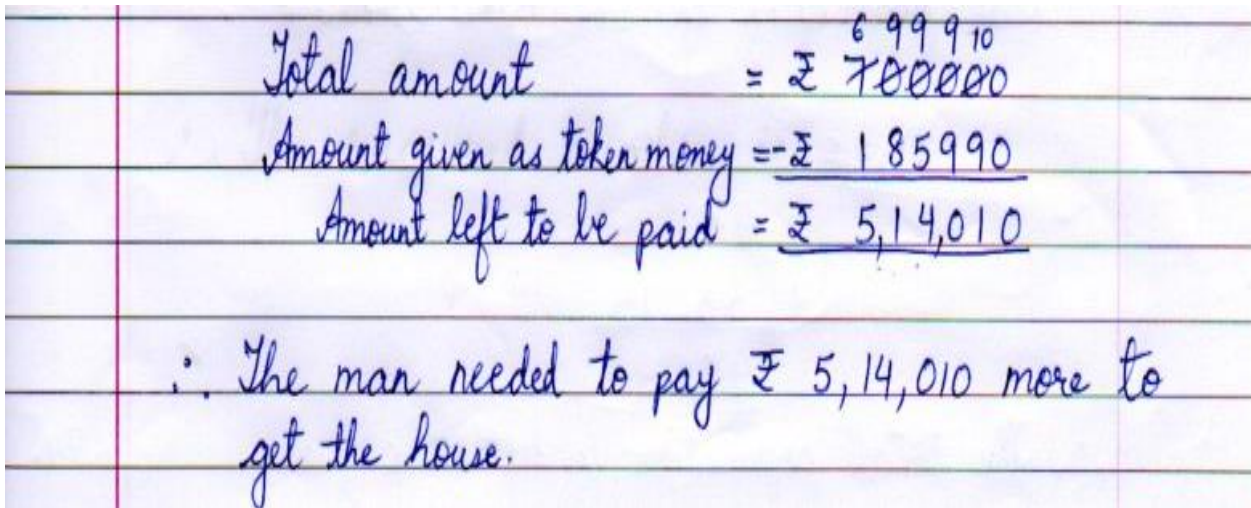 6 9 9 9 10
Total amount = ₹ 700000
Amount given as token money =-₹ 185990
Amount left to be paid = ₹ 5,14,010
∴ The man needed to pay ₹ 5,14,010 more to
get the house.